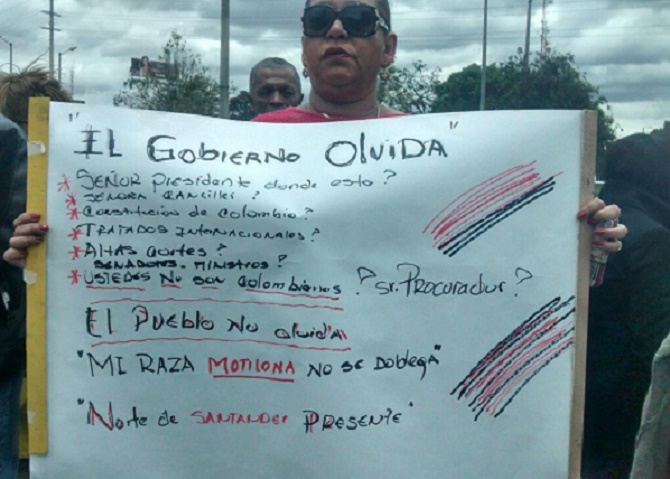 "EL GOBIERNO OLVIDA"
* SEÑOR Presidente donde esto?
* SEÑORA CANCiller?
* Constitucion de Colombia?
* TRATADOS INTERNACIONALES?
* ALTAS CORTES?
SENADORES. MINISTROS?
* USTEDES NO SON Colombianos? ? sr. Procuradur?
El Pueblo No olvida
"MI RAZA MOTILONA NO SE DOblega"
"Norte de SANTANDER PRESENTE"